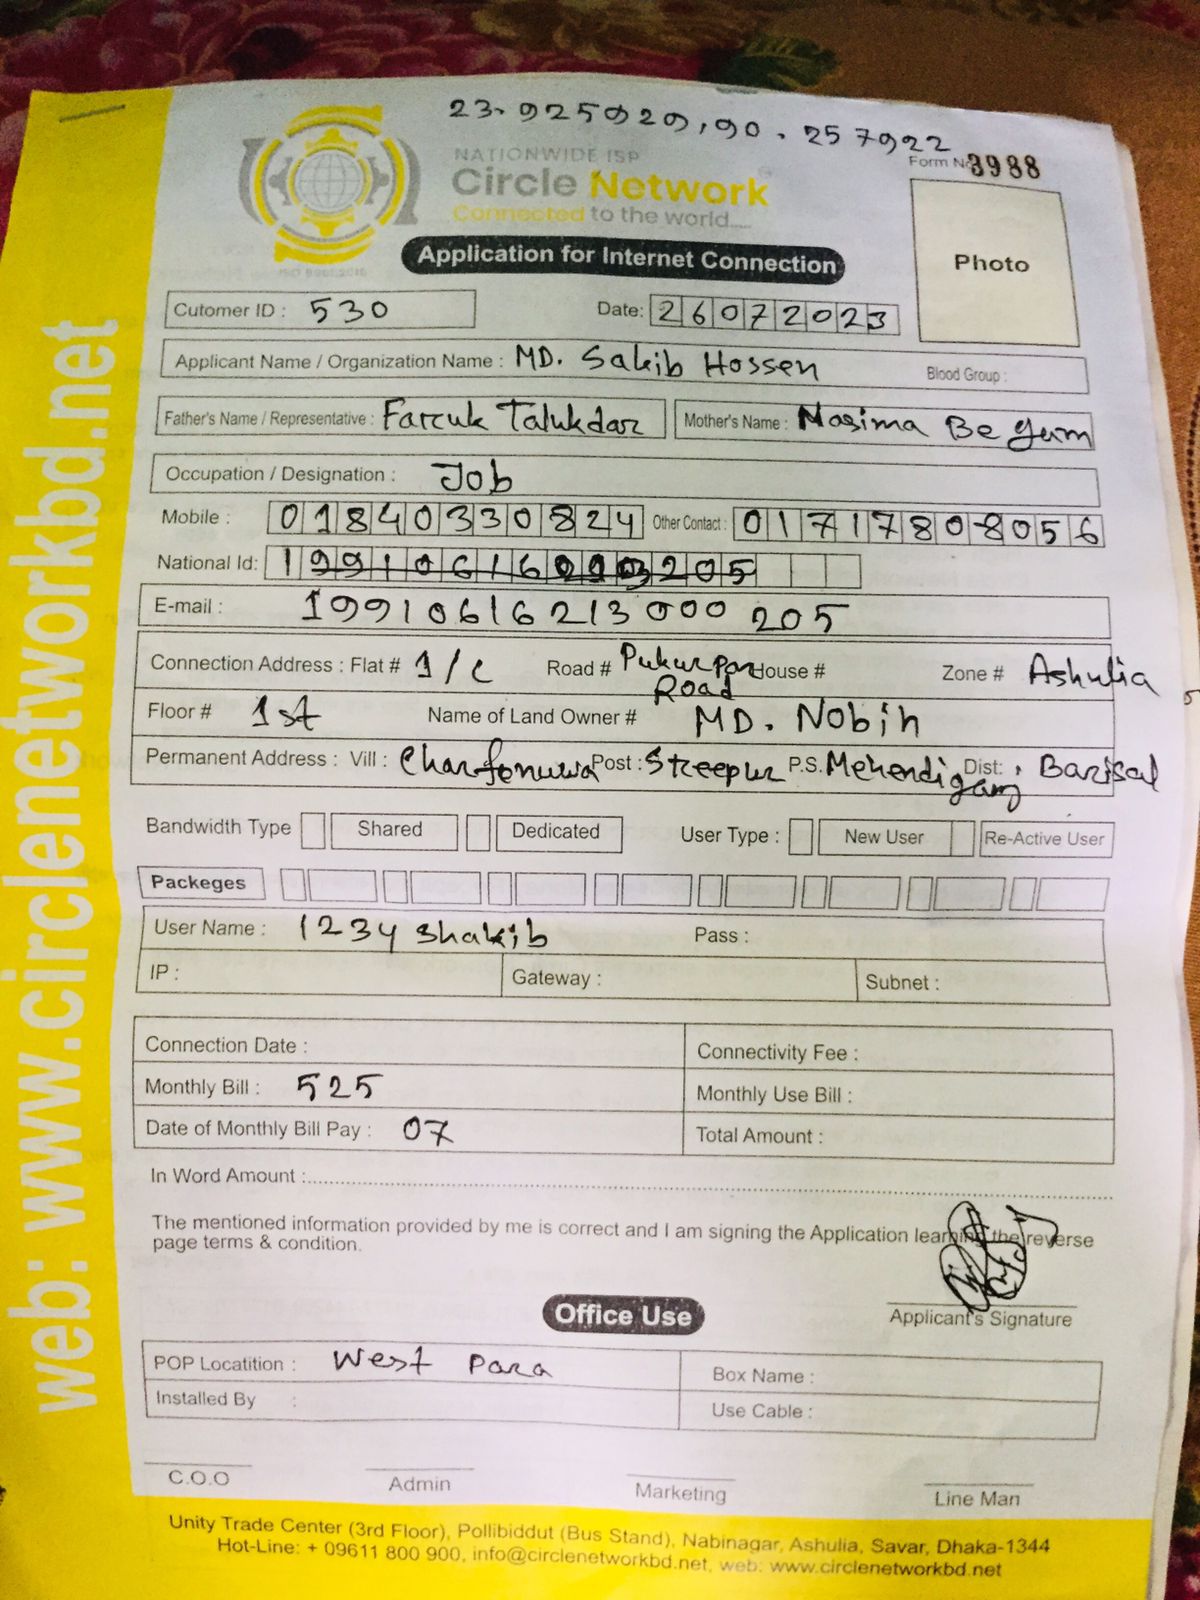 23.925929,90.257922
NATIONWIDE ISP
Form No 3988
Circle Network
Connected to the world.....
ISO 9001:2015
Application for Internet Connection
Photo
Cutomer ID : 530 Date: 26072023
Applicant Name / Organization Name : MD. Sakib Hossen Blood Group :
Father's Name / Representative : Farcuk Talukdar Mother's Name : Nasima Begum
Occupation / Designation : Job
Mobile : 01840330824 Other Contact : 01717808056
National Id:
E-mail : 19910616213000205
Connection Address : Flat # 1/c Road # Pukurpar Road House # Zone # Ashulia
Floor # 1st Name of Land Owner # MD. Nobin
Permanent Address : Vill : Post : Sreepur P.S. Mehendiganj Dist: Barisal
Bandwidth Type Shared Dedicated User Type : New User Re-Active User
Packeges
User Name : 1234shakib Pass :
IP : Gateway : Subnet :
Connection Date : Connectivity Fee :
Monthly Bill : 525 Monthly Use Bill :
Date of Monthly Bill Pay : 07 Total Amount :
In Word Amount :
The mentioned information provided by me is correct and I am signing the Application learning the reverse
page terms & condition.
Applicant's Signature
Office Use
POP Locatition : West Para Box Name :
Installed By : Use Cable :
C.O.O Admin Marketing Line Man
Unity Trade Center (3rd Floor), Pollibiddut (Bus Stand), Nabinagar, Ashulia, Savar, Dhaka-1344
Hot-Line: + 09611 800 900, info@circlenetworkbd.net, web: www.circlenetworkbd.net
web: www.circlenetworkbd.net